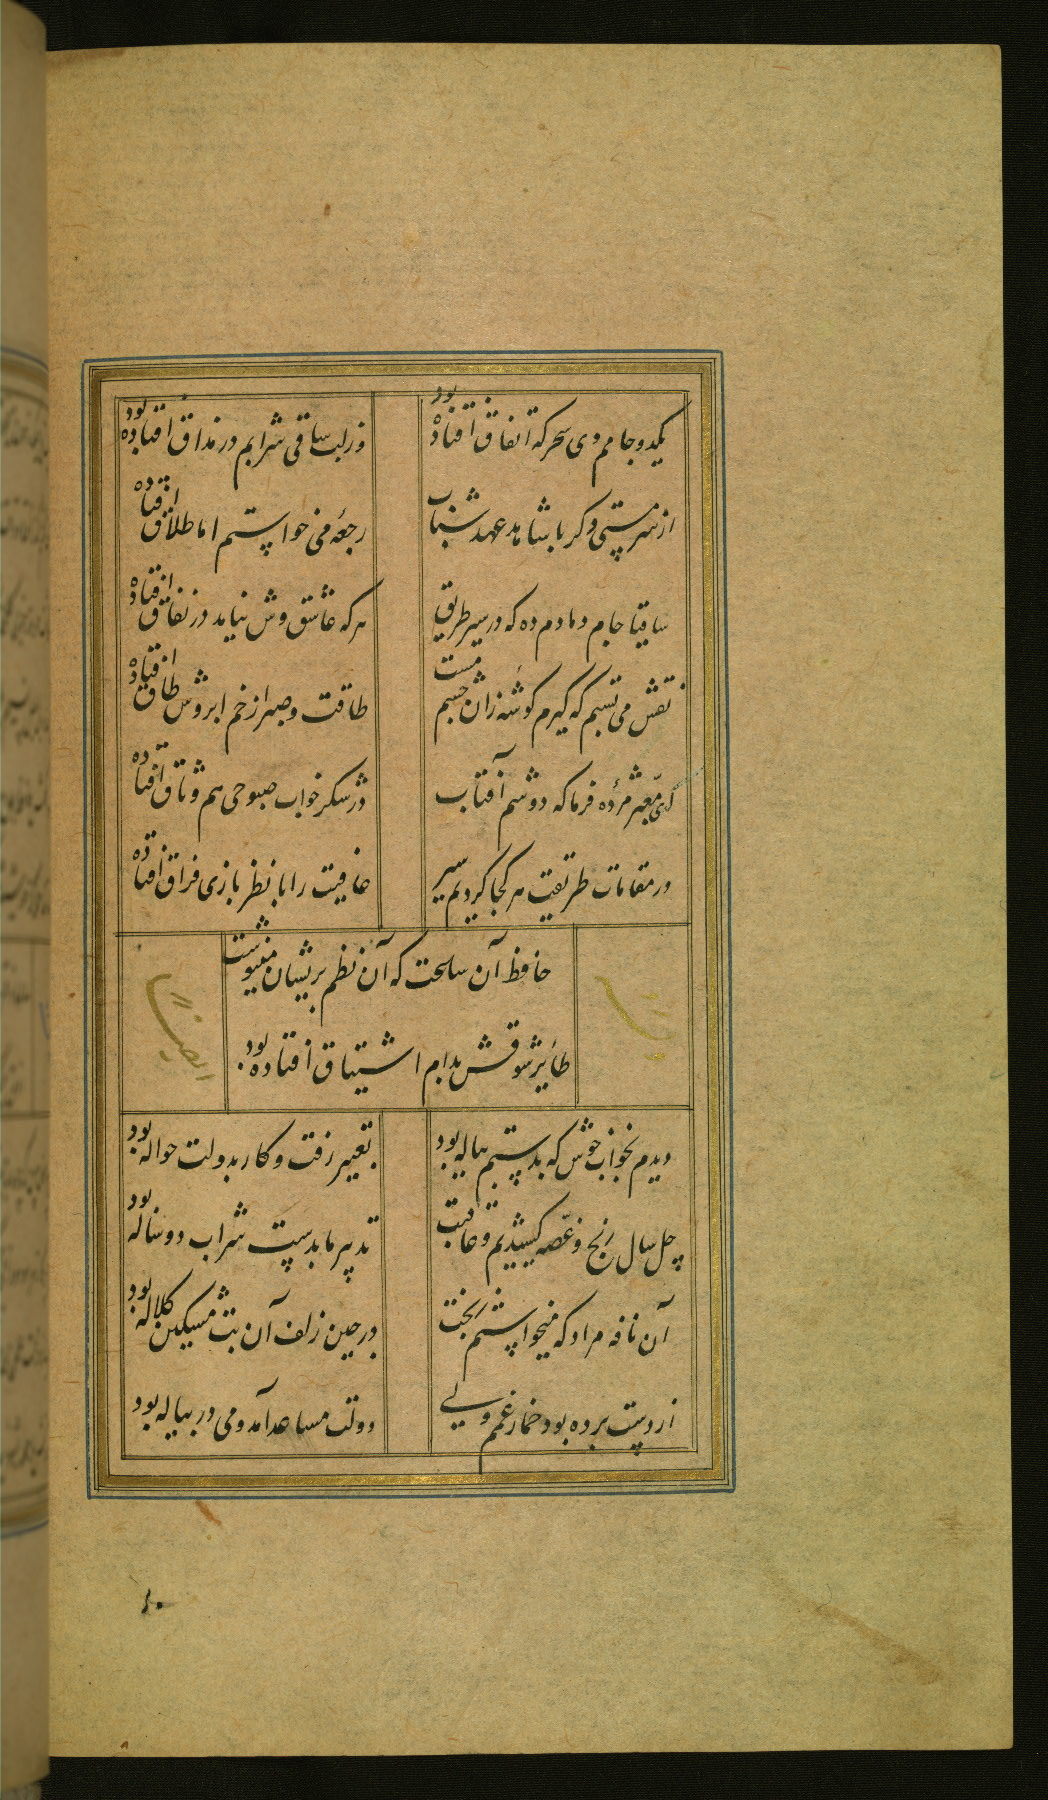 یکدوجامم دی سحرکه اتفاق افتاده بود
وزلب ساقی شرابم در مذاق افتاده بود
از سر مستی دگر با شاهد عهد شباب
رجعه می خواستم اما طلاق افتاده
ساقیا جام دمادم ده که در سیر طریق
هرکه عاشق وش نیامد در نفاق افتاده
نقش می بستم که گیرم گوشه زان چشم مست
طاقت و صبر از خم ابروش طاق افتاده
ای معبر مژده فرما که دوشم آفتاب
در شکر خواب صبوحی هم وثاق افتاده
در مقامات طریقت هر کجا کردیم سیر
عافیت را با نظر بازی فراق افتاده
حافظ آن ساعت که آن نظم پریشان می نوشت
طایر شوقش بدام اشتیاق افتاده بود
ایضا
دیدم بخواب خوش که بدستم پیاله بود
تعبیر رفت و کار بدولت حواله بود
چل سال رنج و غصه کشیدیم و عاقبت
تدبیر ما بدست شراب دوساله بود
آن نافه مراد که میخواستم ز بخت
در چین زلف آن بت مشکین کلاله بود
از دست برده بود خمار غمم ولی
دولت مساعد آمد و می در پیاله بود